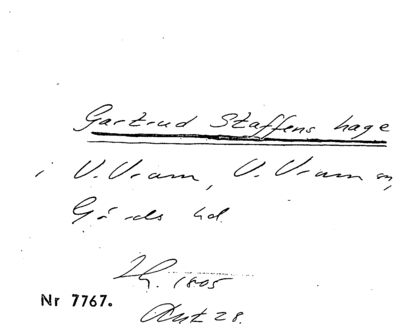 Gertrud Staffens hage
i V. Vram, V. Vram sn,
Gärds hd.
Th. 1805
Nr 7767.
Ant 28.